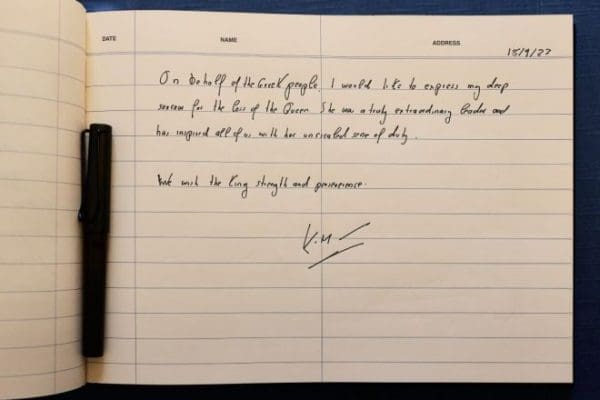 DATE NAME ADDRESS
15/9/22
On behalf of the Greek people, I would like to express my deep
sorrow for the loss of the Queen. She was a truly extraordinary leader and
has inspired all of us with her unrivaled sense of duty.
We wish the King strength and perseverence.
K.M.